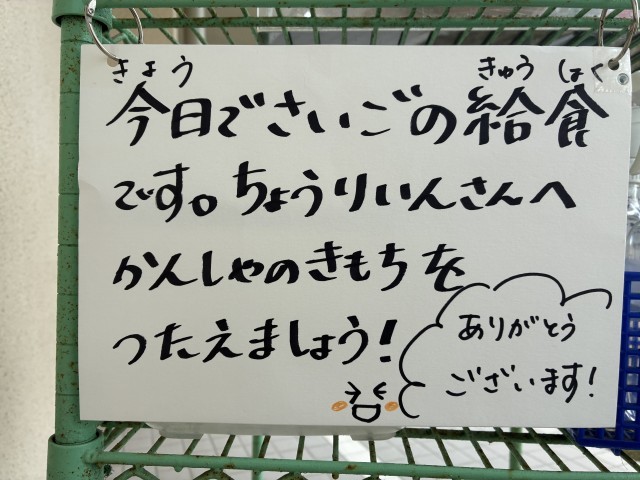 きょう きゅう しょく
今日でさいごの給食
です。ちょうりいんさんへ
かんしゃのきもちを
つたえましょう!
ありがとう
ございます!